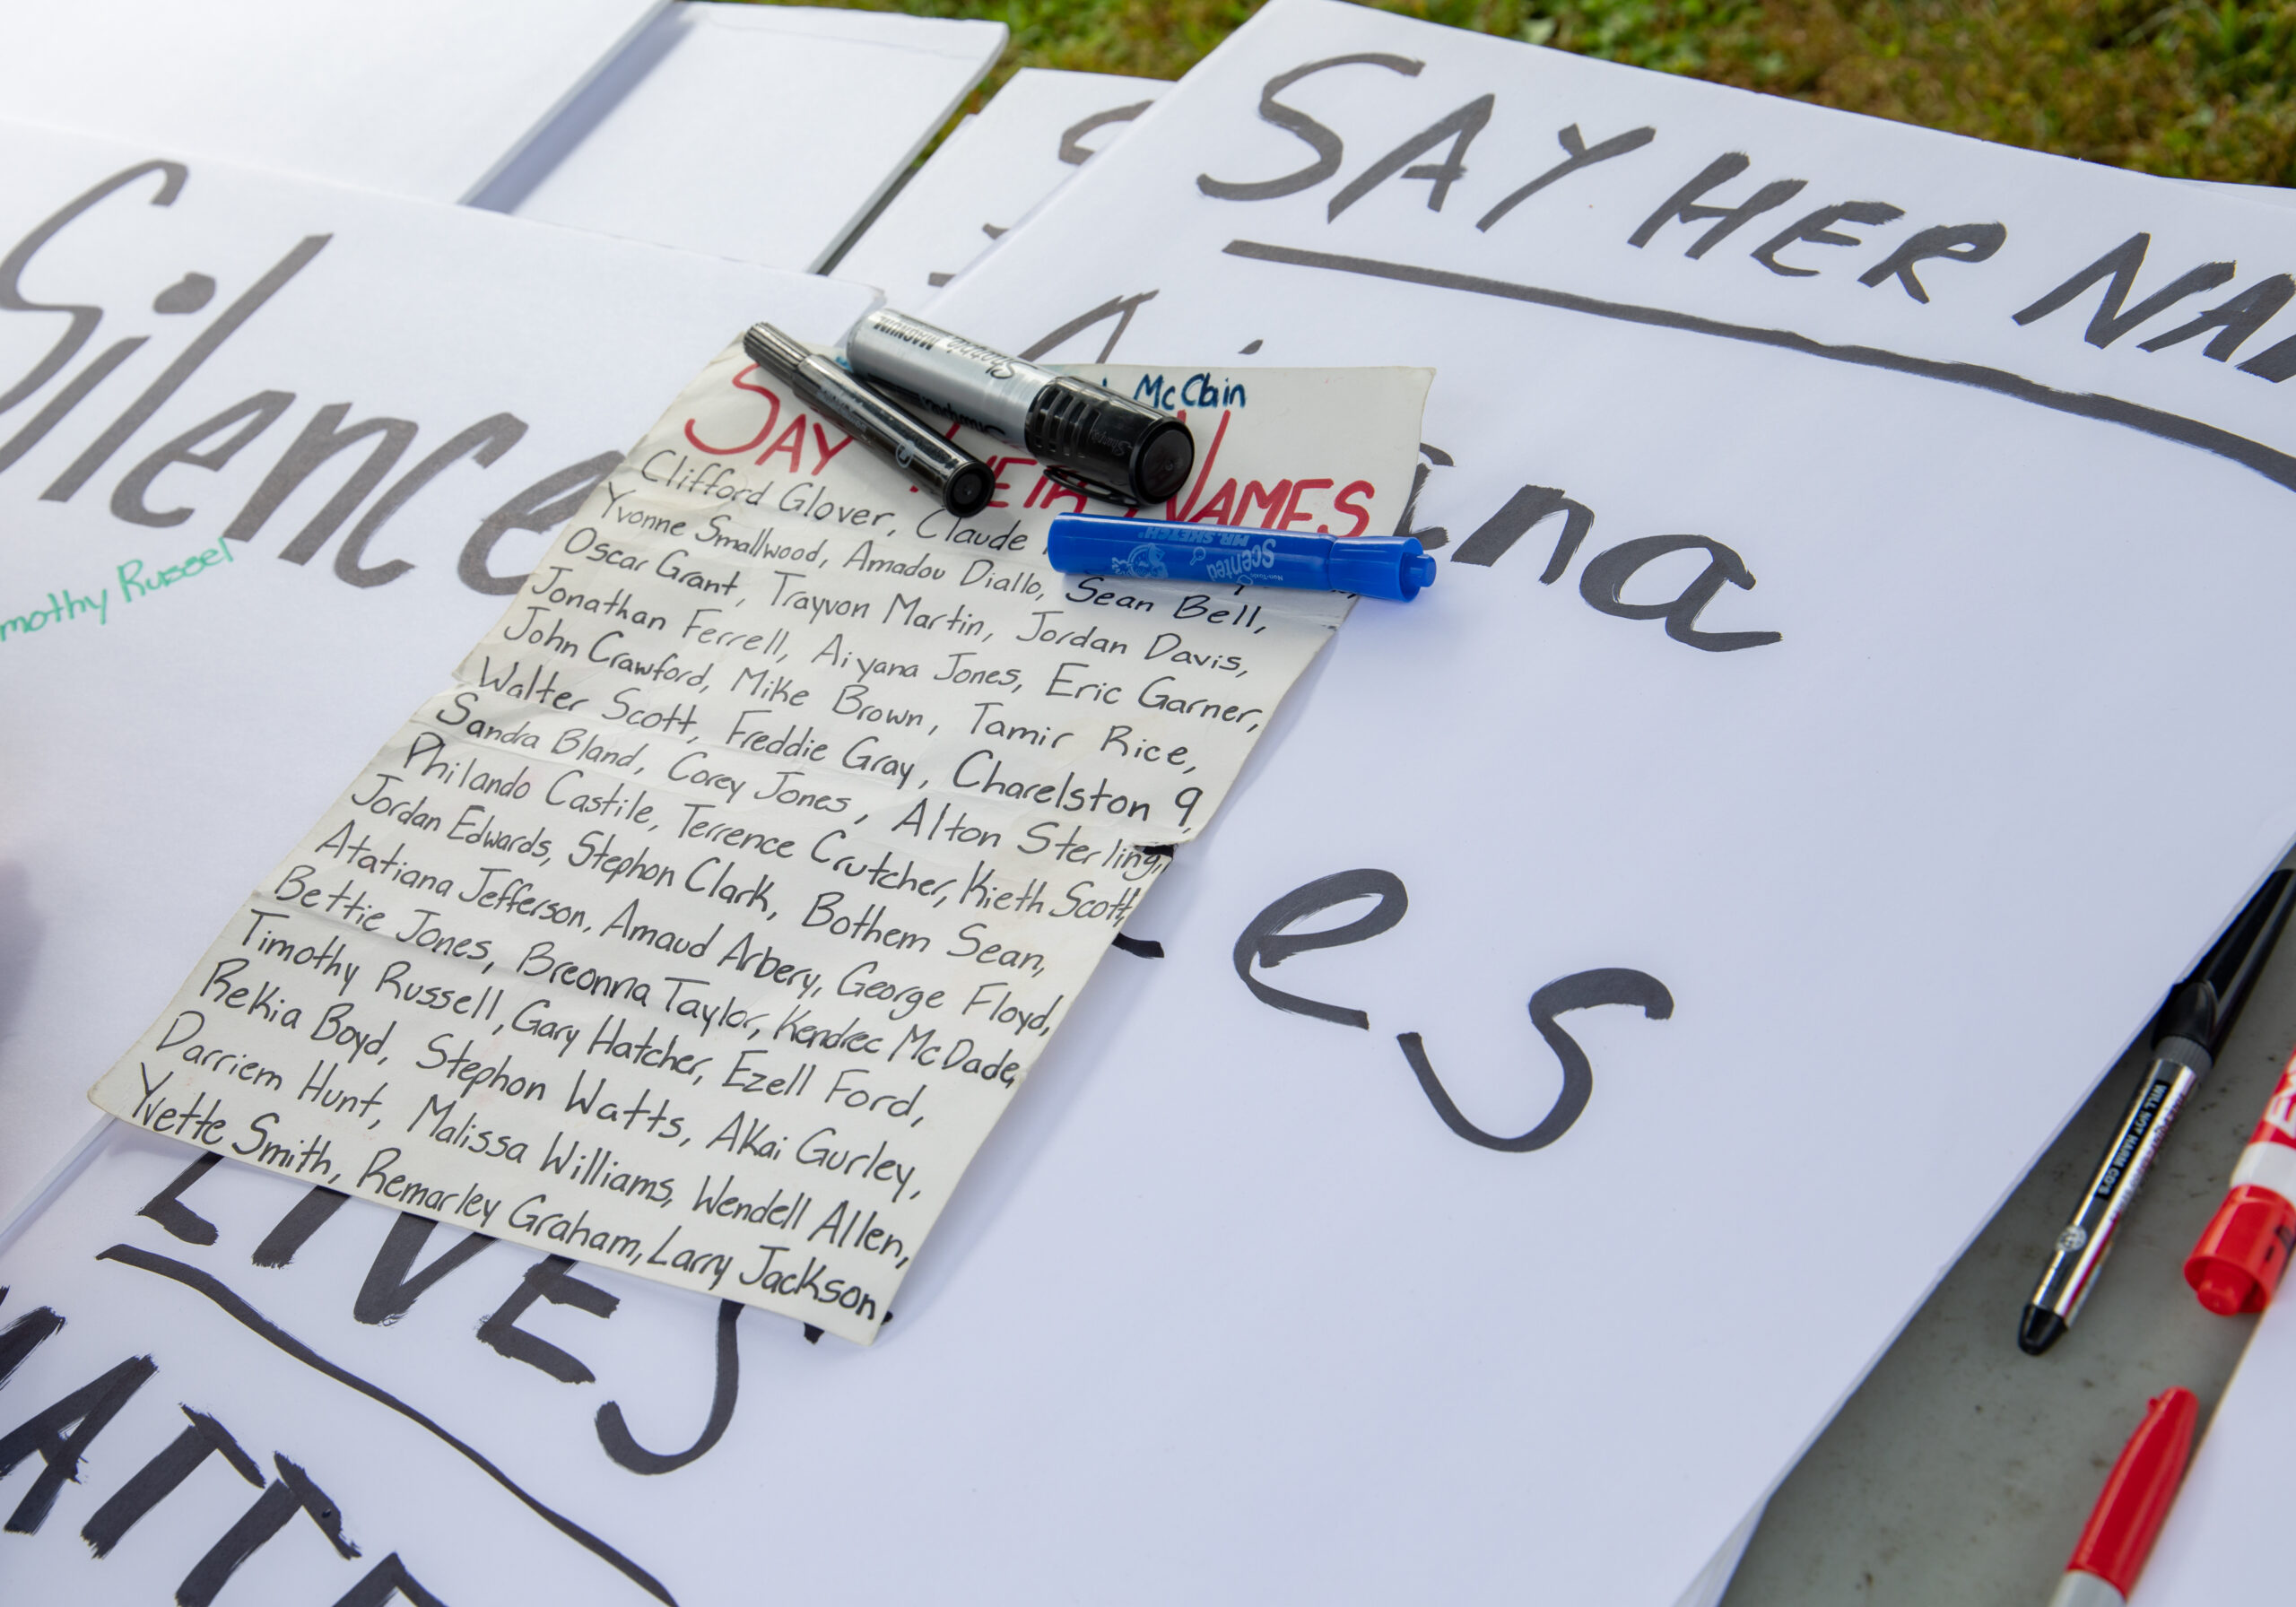 SAY HER NA
ina
es
Silence
mothy Russel
McClain
SAY NAMES
Clifford Glover, Claude
Yvonne Smallwood, Amadou Diallo, Sean Bell,
Oscar Grant, Trayvon Martin, Jordan Davis,
Jonathan Ferrell, Aiyana Jones, Eric Garner,
John Crawford, Mike Brown, Tamir Rice,
Walter Scott, Freddie Gray, Charelston 9,
Sandra Bland, Corey Jones, Alton Sterling,
Philando Castile, Terrence Crutcher, Kieth Scott,
Jordan Edwards, Stephon Clark, Bothem Sean,
Atatiana Jefferson, Amaud Arbery, George Floyd,
Bettie Jones, Breonna Taylor, Kendrec McDade,
Timothy Russell, Gary Hatcher, Ezell Ford,
Rekia Boyd, Stephon Watts, AKai Gurley,
Darriem Hunt, Malissa Williams, Wendell Allen,
Yvette Smith, Remarley Graham, Larry Jackson.
LIVES
MATTE
Sharpie MAGNUM
Scented
MR. SKETCH
WILL NOT HARM CD'S